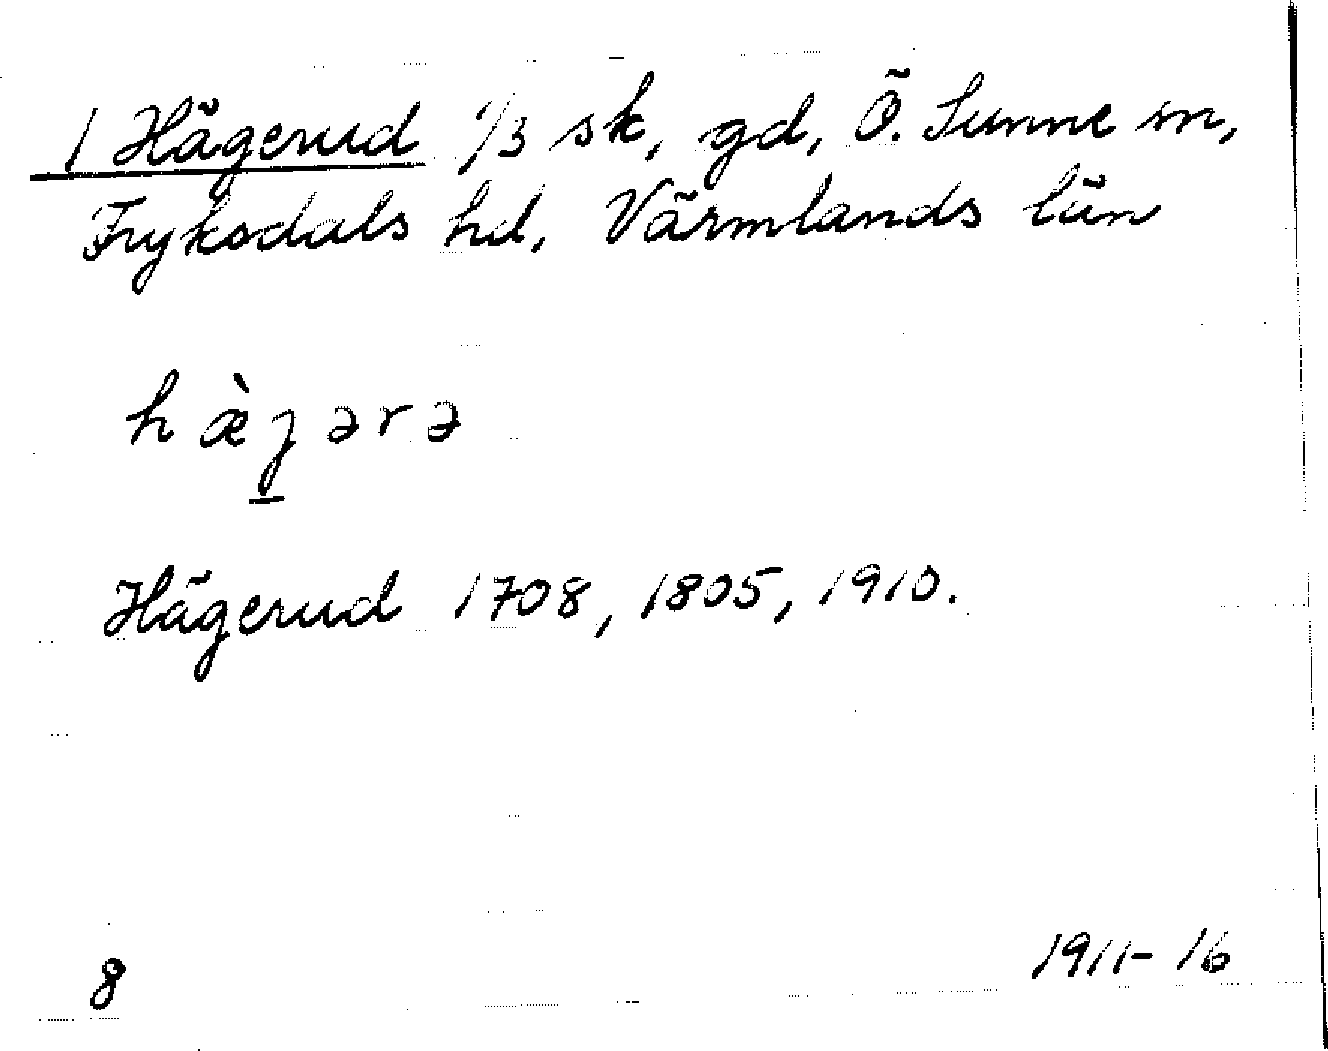 1 Hägerud 1/3 sk, gd, Ö. Sunne sn,
Fryksdals hd, Värmlands län
hæ̀ȷərə
Hägerud 1708, 1805, 1910.
8
1911-16